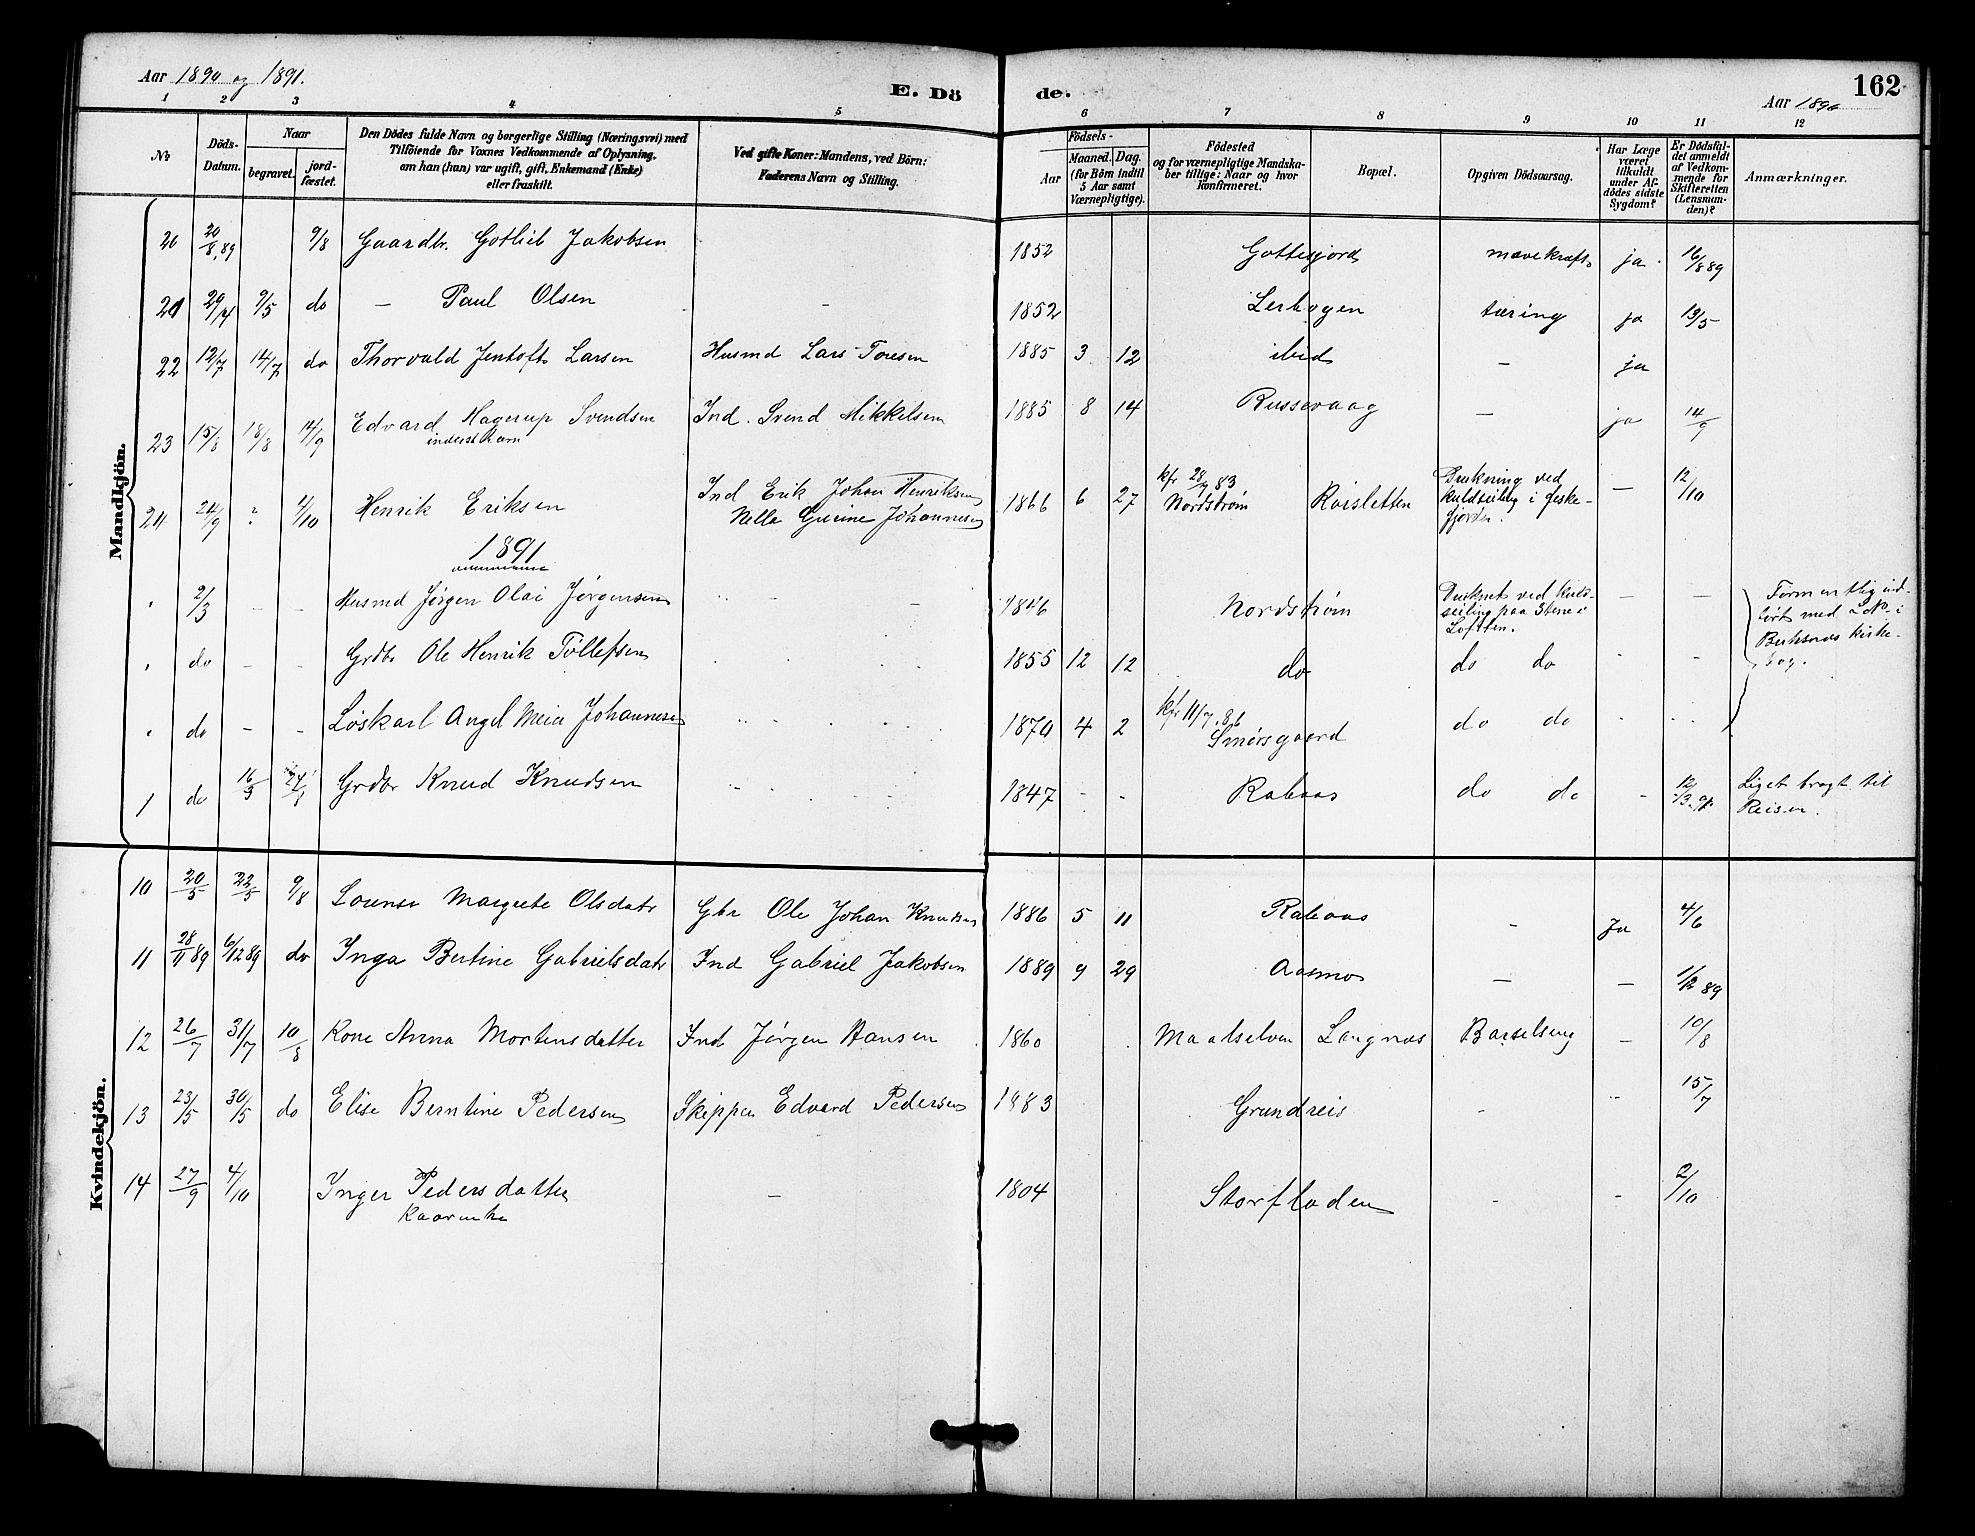 Aar 1890 og 1891.
E. Dö
de.
162
Aar 1890
1 2 3 4 5 6 7 8 9 10 11 12
No
Döds-Datum.
Naar
begravet.
jord-fæstet.
Den Dödes fulde Navn og borgerlige Stilling (Næringsvei) med
Tilföiende for Voxnes Vedkommende af Oplysning,
om han (hun) var ugift, gift, Enkemand (Enke)
eller fraskilt.
Ved gifte Koner: Mandens, ved Börn:
Faderens Navn og Stilling.
Födsels-
Aar
Maaned.
Dag.
(for Börn indtil
5 Aar samt
Værnepligtige).
Födested
og for værnepligtige Mandska-
ber tillige: Naar og hvor
konfirmeret.
Bopæl.
Opgiven Dödsaarsag.
Har Læge
været
tilkaldt
under Af-
dödes sidste
Sygdom?
Er Dödsfal-
det anmeldt
af Vedkom-
mende for
Skifteretten
(Lensman-
den)?
Anmærkninger.
Mandkjön.
20 20/8 89 9/8 Gaardbr. Gotlieb Jakobsen 1852 Gottesjord mavekræft ja 16/8 89
21 29/4 9/5 do — Paul Olsen — 1852 Lerbogen tæring ja 13/5
22 12/7 14/7 do Thorvald Jentoft Larsen Husmd Lars Toresen 1885 3 12 ibid — ja
23 15/8 18/8 14/9 Edvard Hagerup Svendsen Ind. Svend Mikkelsen 1885 8 14 Russevaag — ja 14/9
inderst Barn
24 24/9 ? 4/10 Henrik Eriksen Ind Erik Johan Henriksen 1866 6 27 kfr 28/9 83 Nordstrøm Roisletten Drukning ved kuldseiling i feske-fjorden. — 12/10
Nella Gurine Johannesen
1891
" 2/3 – – Husmd Jørgen Olai Jørgensen – – 1846 Nordstrøm Druknet ved kuld-seiling paa Stene i Loftten. – –
" do – – Grdbr Ole Henrik Tollefsen 1855 12 12 do do do
" do – – Løskarl Angel Meier Johannesen 1870 4 2 kfr 11/7 86 Smørsgaard do do
1 do 16/3 Grdbr Knud Knudsen 1847 - - Rabaas do do - 12/3 91 Liget bragt til
Reisen.
Kvindekjön.
10 20/5 22/5 9/8 Lorense Margrete Olsdatr Gbr Ole Johan Knudsen 1886 5 11 Rabaas - Ja 4/6
11 28/11 89 6/12 89 do Inga Bertine Gabrielsdatr Ind Gabriel Jakobsen 1889 9 29 Aasmo — — 1/12 89
12 26/7 31/7 10/8 Kone Anna Mortensdatter Ind Jørgen Hansen 1860 Maalselven Langnæs Barselseng — 10/8
13 23/5 30/5 do Elise Berntine Pedersen Skipper Edvard Pedersen 1883 Grundreis - " 15/7
14 27/9 4/10 Inger Pedersdatter — 1804 Storfladen - - 2/10